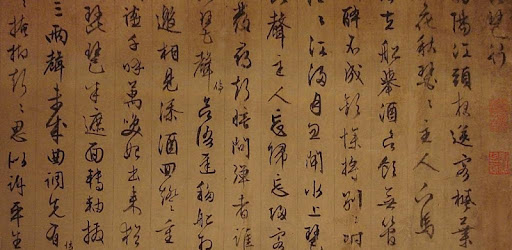 琵琶行
潯陽江頭夜送客楓葉
荻花秋瑟〻主人下馬
客在船舉酒欲飲無管
醉不成歡慘將別〻時
茫〻江浸月忽聞水上琵
聲主人忘歸客
發尋聲暗問彈者誰
琵琶聲停欲語遲移船相
邀相見添酒回燈重
宴千呼萬喚始出來猶
琵琶半遮面轉軸撥
三兩聲未成曲調先有情
掩抑聲〻思似訴平生